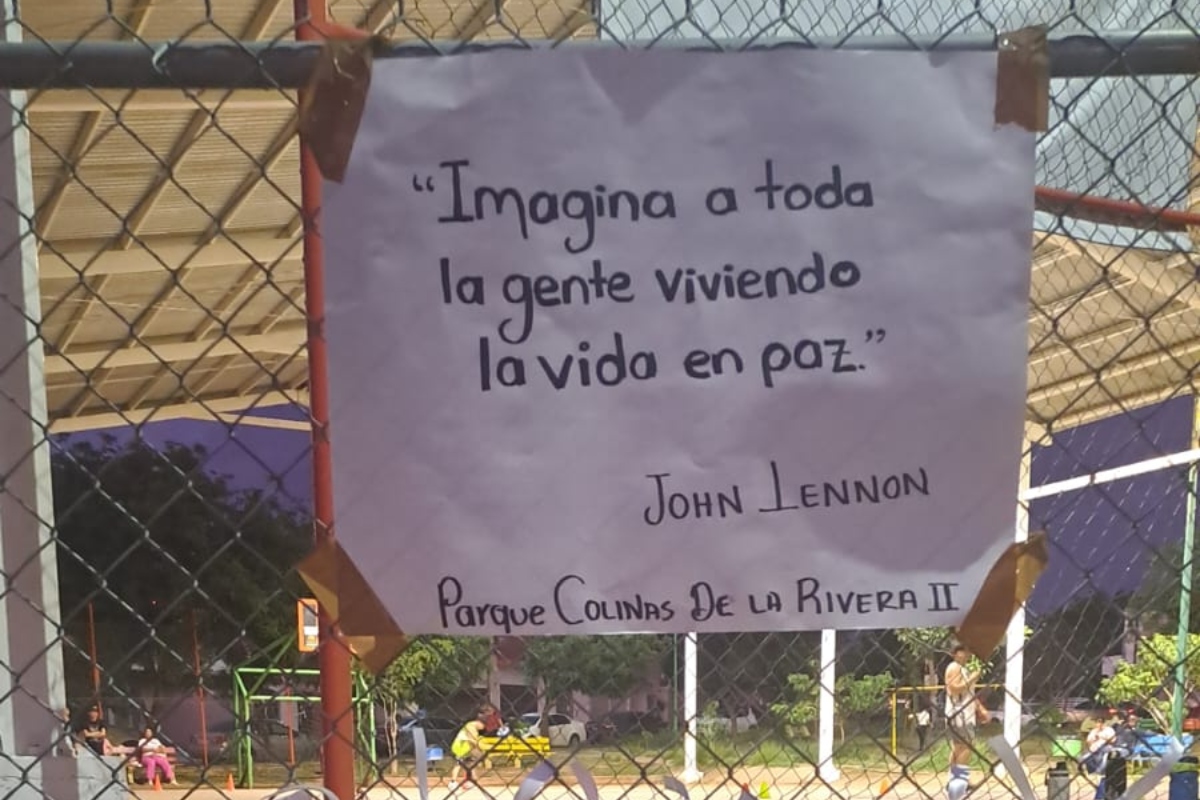 “Imagina a toda
la gente viviendo
la vida en paz.”
JOHN LENNON
Parque COLINAS DE LA RIVERA II